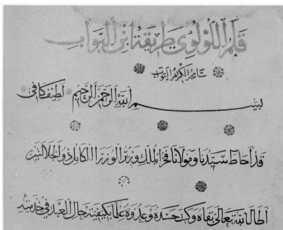 قلم اللؤلؤي طريقة ابن البواب
بسم الله الرحمن الرحيم لطيف كافي
قد أحاط سيدنا ومولانا فخر الملك وزير الوزراء الكامل ذو الجلالتين
أطال الله تعالى بقاه وكبت حسدته وعدوه علما بكيفية حال العبد في خدمته